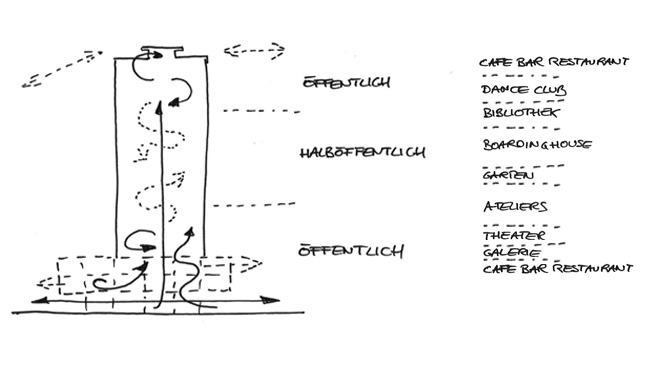 ÖFFENTLICH
HALBÖFFENTLICH
ÖFFENTLICH
CAFE BAR RESTAURANT
DANCE CLUB
BIBLIOTHEK
BOARDINGHOUSE
GARTEN
ATELIERS
THEATER
GALERIE
CAFE BAR RESTAURANT